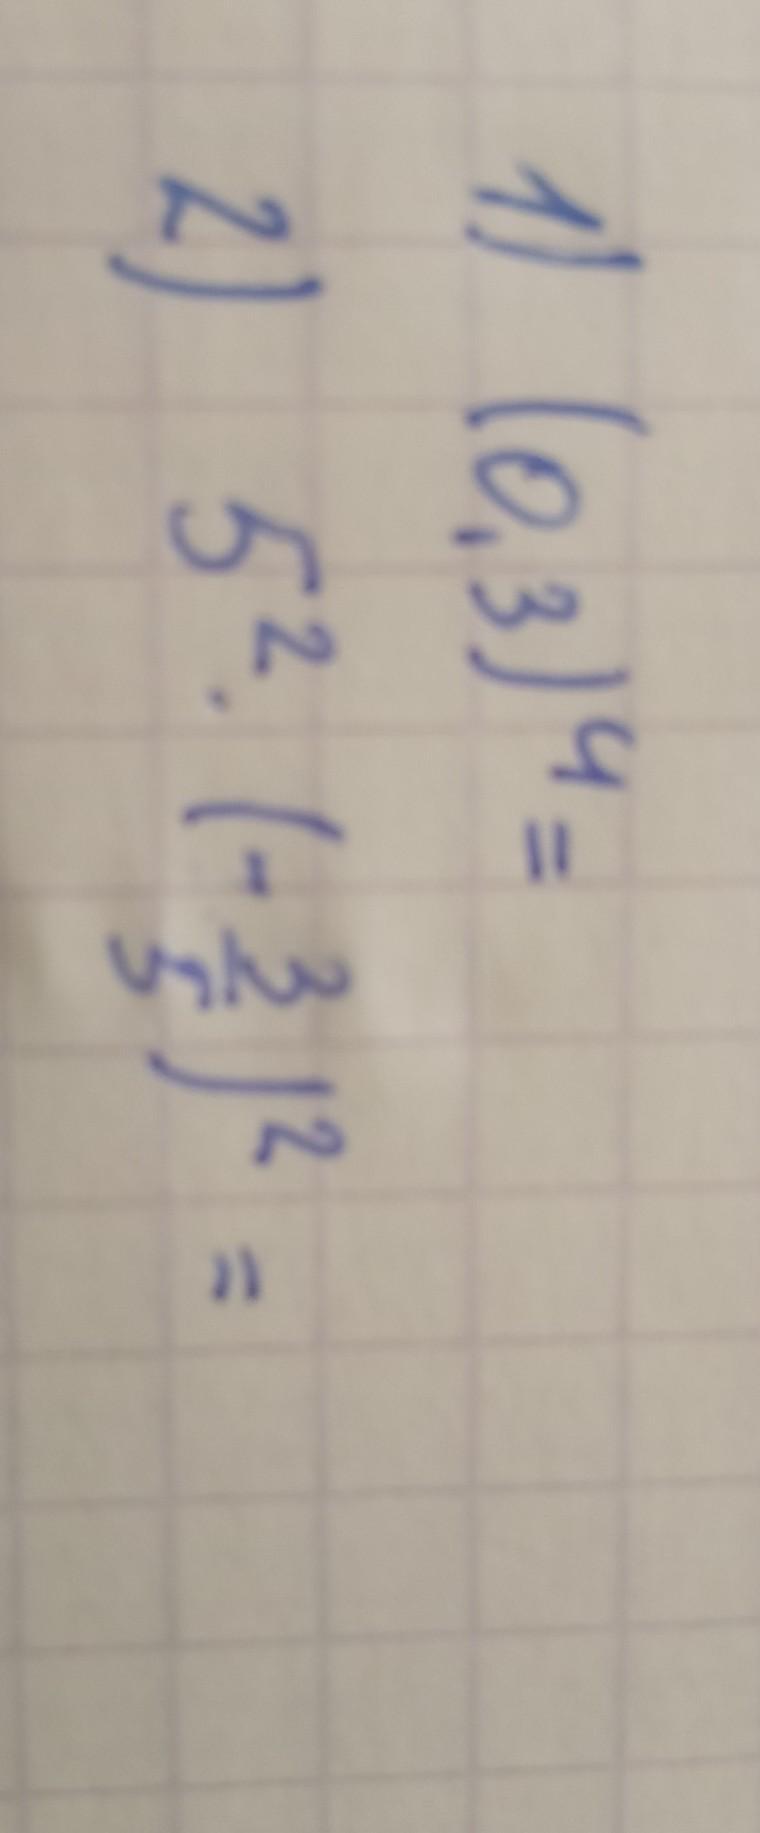 1) (0,3)⁴ =
2) 5² · (-3/5)² =